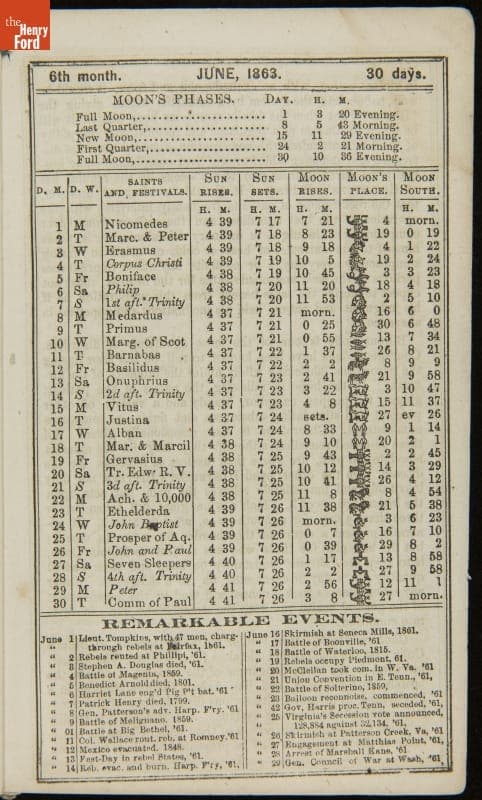 the
Henry
Ford
6th month. JUNE, 1863. 30 days.
MOON'S PHASES. DAY. H. M.
Full Moon,........................ 1 3 20 Evening.
Last Quarter,........................ 8 5 43 Morning.
New Moon,........................ 15 11 29 Evening.
First Quarter,........................ 24 2 21 Morning.
Full Moon,........................ 30 10 36 Evening.
D. M. D. W. SAINTS AND FESTIVALS. SUN RISES. SUN SETS. MOON RISES. MOON'S PLACE. MOON SOUTH.
H. M. H. M. H. M. H. M.
1 M Nicomedes 4 39 7 17 7 21 4 morn.
2 T Marc. & Peter 4 39 7 18 8 23 19 0 19
3 W Erasmus 4 39 7 18 9 18 4 1 22
4 T Corpus Christi 4 39 7 19 10 5 19 2 24
5 Fr Boniface 4 38 7 19 10 45 3 3 23
6 Sa Philip 4 38 7 20 11 20 18 4 18
7 S 1st aft. Trinity 4 38 7 20 11 53 2 5 10
8 M Medardus 4 37 7 21 morn. 16 6 0
9 T Primus 4 37 7 21 0 25 30 6 48
10 W Marg. of Scot 4 37 7 21 0 55 13 7 34
11 T Barnabas 4 37 7 22 1 37 26 8 21
12 Fr Basilidus 4 37 7 22 2 2 8 9 9
13 Sa Onuphrius 4 37 7 23 2 41 21 9 58
14 S 2d aft. Trinity 4 37 7 23 3 22 3 10 47
15 M Vitus 4 37 7 23 4 8 15 11 37
16 T Justina 4 37 7 24 sets. 27 ev 26
17 W Alban 4 37 7 24 8 33 9 1 14
18 T Mar. & Marcil 4 38 7 24 9 10 20 2 1
19 Fr Gervasius 4 38 7 25 9 43 2 2 45
20 Sa Tr. Edw. R. V. 4 38 7 25 10 12 14 3 29
21 S 3d aft. Trinity 4 38 7 25 10 41 26 4 12
22 M Ach. & 10,000 4 38 7 25 11 8 8 4 54
23 T Ethelderda 4 39 7 26 11 38 21 5 38
24 W John Baptist 4 39 7 26 morn. 3 6 23
25 T Prosper of Aq. 4 39 7 26 0 7 16 7 10
26 Fr John and Paul 4 39 7 26 0 39 29 8 2
27 Sa Seven Sleepers 4 40 7 26 1 17 13 8 58
28 S 4th aft. Trinity 4 40 7 26 2 2 27 9 58
29 M Peter 4 41 7 26 2 56 12 11 1
30 T Comm of Paul 4 41 7 26 3 8 27 morn.
REMARKABLE EVENTS.
June 1 Lieut. Tompkins, with 47 men, charg-
" through rebels at Fairfax, 1861.
" 2 Rebels routed at Phillipi, '61.
" 3 Stephen A. Douglas died, '61.
" 4 Battle of Magenta, 1859.
" 5 Benedict Arnold died, 1801.
" 6 Harriet Lane eng'd Pig P't bat. '61
" 7 Patrick Henry died, 1799.
" 8 Gen. Patterson's adv. Harp. F'ry. '61
" 9 Battle of Melignano. 1859.
" 01 Battle at Big Bethel, '61.
" 11 Col. Wallace rout. reb. at Romney.'61
" 12 Mexico evacuated. 1848.
" 13 Fast-Day in rebel States, '61.
" 14 Reb. evac. and burn. Harp. F'ry, '61.
June 16 Skirmish at Seneca Mills, 1861.
" 17 Battle of Boonville, '61.
" 18 Battle of Waterloo, 1815.
" 19 Rebels occupy Piedmont, 61.
" 20 McClellan took com. in W. Va. '61
" 21 Union Convention in E. Tenn., '61,
" 22 Battle of Solferino, 1859,
" 23 Balloon reconnois. commenced, '61
" 42 Gov. Harris proc. Tenn. seceded, '61,
" 25 Virginia's Secession vote announced,
128,884 against 32,134, '61.
" 26 Skirmish at Patterson Creek, Va, '61
" 27 Engagement at Matthias Point, '61,
" 28 Arrest of Marshall Kane, '61
" 29 Gen. Council of War at Wash, '61